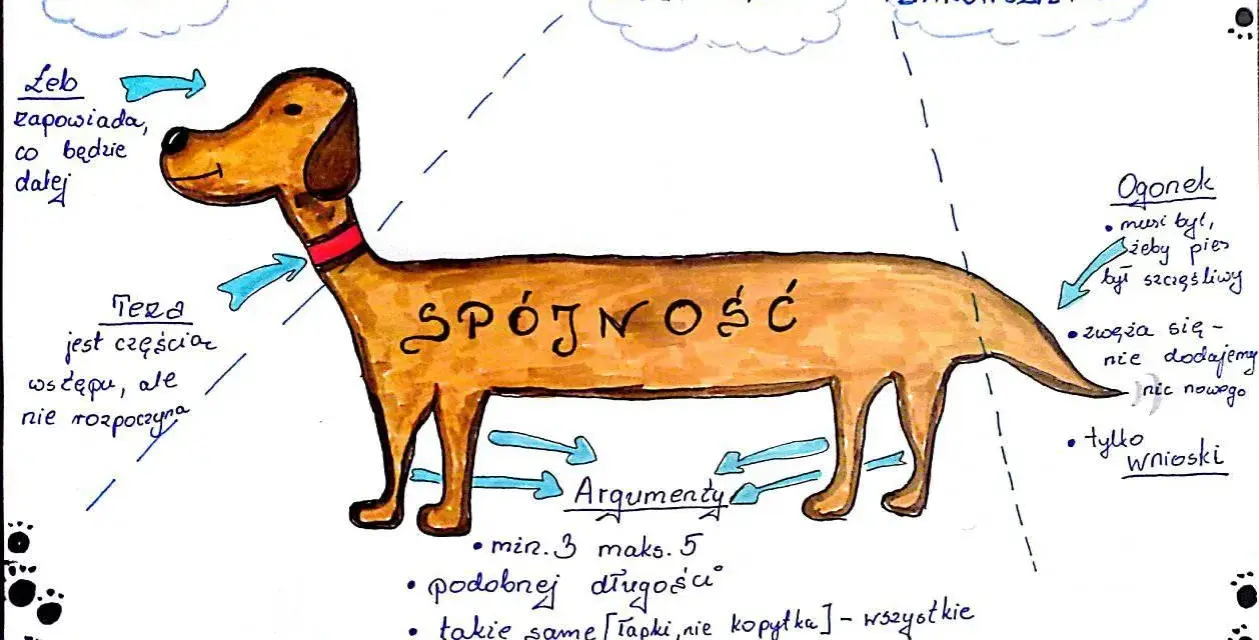 Łeb
zapowiada,
co będzie
dalej
Teza
jest częścią
wstępu, ale
nie rozpoczyna
SPÓJNOŚĆ
Ogonek
• musi być,
żeby pies
był szczęśliwy
• zwęża się -
nie dodajemy
nic nowego
• tylko
wnioski
Argumenty
• min. 3 maks. 5
• podobnej długości
• takie same [łapki, nie kopytka] - wszystkie